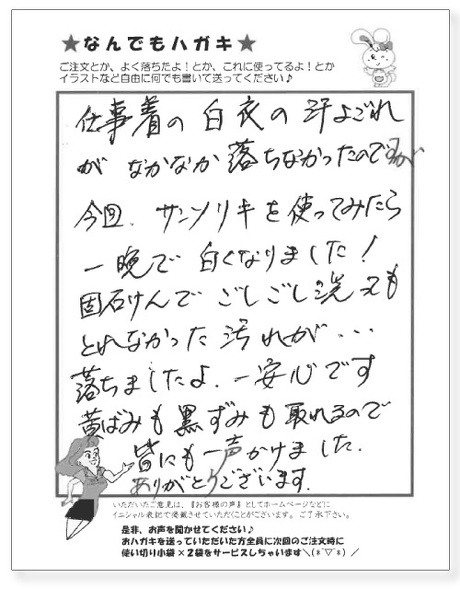 ★なんでもハガキ★
ご注文とか、よく落ちたよ！とか、これに使ってるよ！とか
イラストなど自由に何でも書いて送ってください♪
仕事着の白衣の汗よごれ
がなかなか落ちなかったのですが
今回、サンソリキを使ってみたら
一晩で白くなりました！
固石けんでごしごし洗っても
とれなかった汚れが・・・
落ちましたよ。一安心です
黄ばみも黒ずみも取れるので
皆にも一声かけました.
ありがとうございます.
いただいたご意見は、『お客様の声』としてホームページなどに
イニシャル表記で掲載させていただくことがございます。ご了承下さい。
是非、お声を聞かせてください♪
おハガキを送っていただいた方全員に次回のご注文時に
使い切り小袋×2袋をサービスしちゃいます＼(*¯▽¯*)／